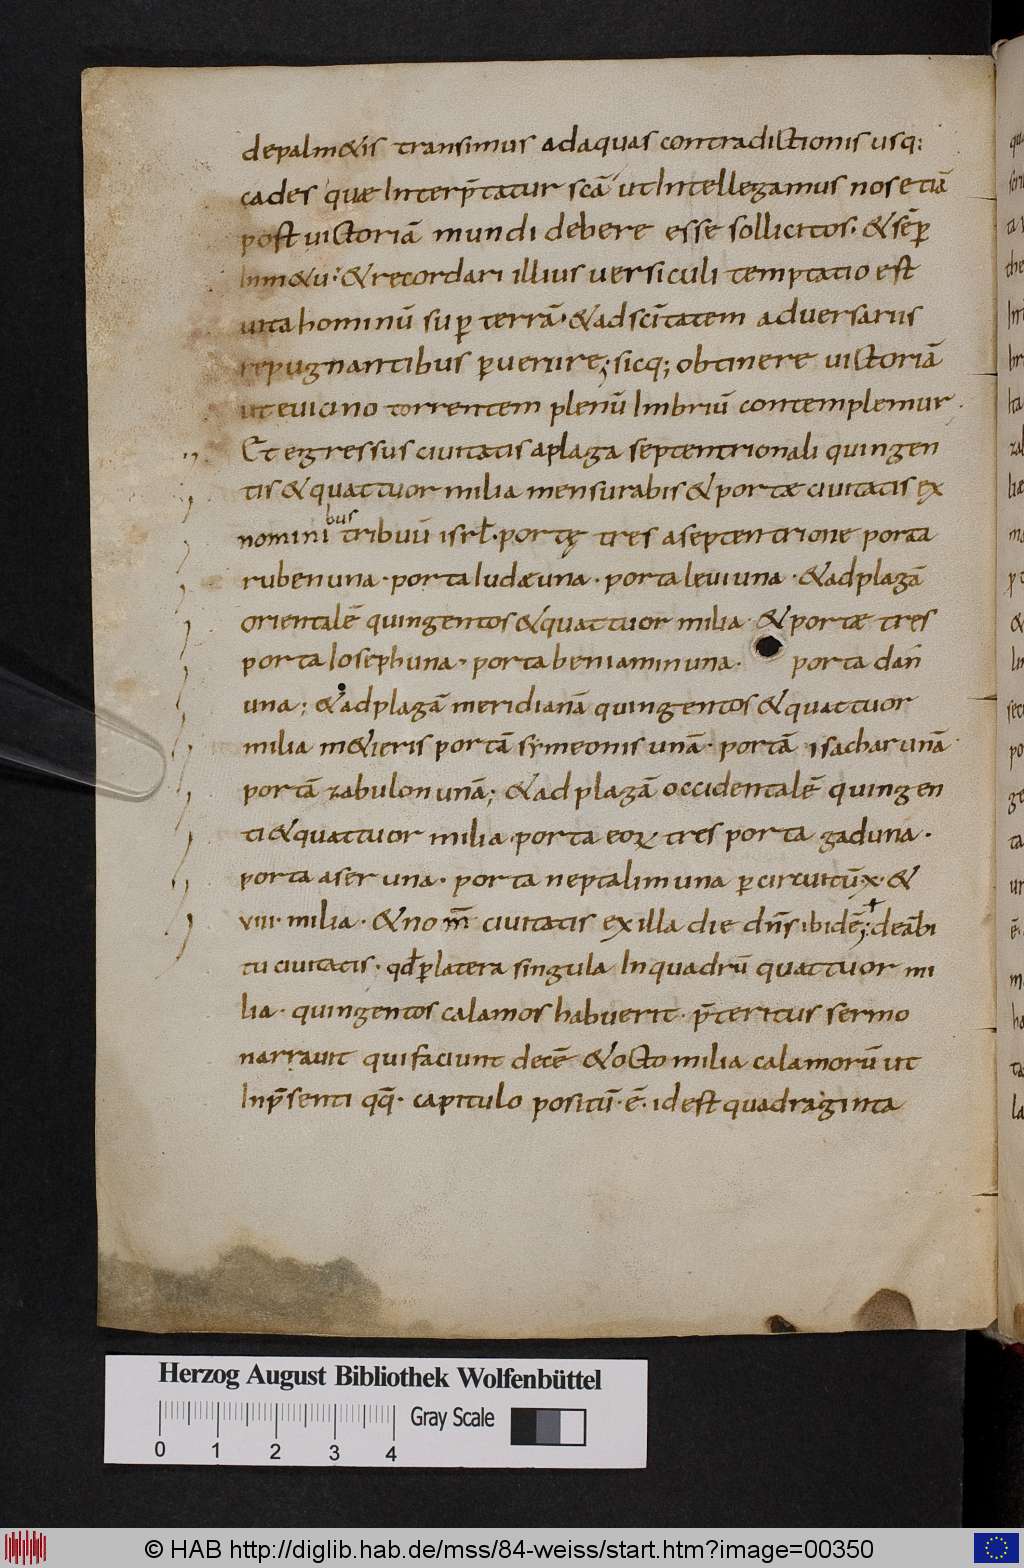 depalm&is transimus adaquas contradictionis usq;
cades quae Interp̄tatur scā utIntellegamus nos etiā
post uictoriā mundi debere esse sollicitos· &sēp̄
Inm&u· &recordari illius uersiculi temptatio est
uita hominū sup terrā· &ad scītatem aduersariis
repugnantibus puenire; sicq; obtinere uictoriā
ut euicino torrentem plenū Imbriū contemplemur.
Et egressus ciuitatis aplaga septentrionali quingen
tis &quattuor milia mensurabis &portae ciuitatis ex
nominibus tribuū isrl̄· portę tres aseptentrione porta
ruben una· porta Iudae una· porta leui una· &adplagā
orientalē quingentos &quattuor milia &portae tres
porta Ioseph una· porta beniamin una· porta dan
una; &adplagā meridianā quingentos &quattuor
milia m&ieris portā symeonis unā· portā isachar unā
portā zabulon unā; &ad plagā occidentalē quingen
ti &quattuor milia porta eoꝝ tres porta gad una·
porta aser una· porta neptalim una p circuitū x· &
uiii· milia· &nom̄ ciuitatis ex illa die dn̄s ibidē; deābi
tu ciuitatis· qd̄ p latera singula Inquadrū quattuor mi
lia· quingentos calamos habuerit· p̄teritus sermo
narrauit qui faciunt decē &octo milia calamorū ut
Inp̄senti qq̄· capitulo positū· ē· idest quadraginta
Herzog August Bibliothek Wolfenbüttel
Gray Scale
0 1 2 3 4
© HAB http://diglib.hab.de/mss/84-weiss/start.htm?image=00350